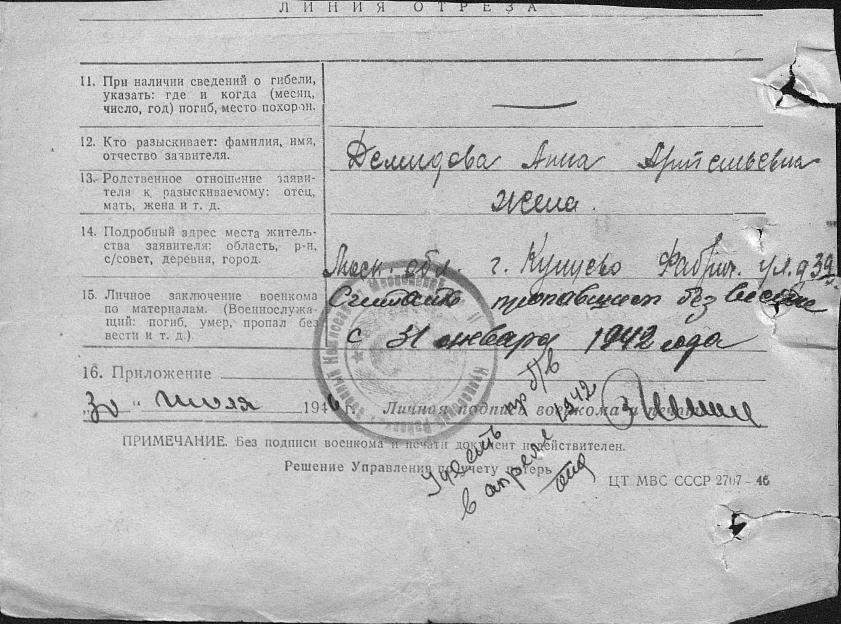 ЛИНИЯ ОТРЕЗА
11. При наличии сведений о гибели,
указать: где и когда (месяц,
число, год) погиб, место похорон.
—
12. Кто разыскивает: фамилия, имя,
отчество заявителя.
Демидова Анна Артемьевна
13. Родственное отношение заяви-
теля к разыскиваемому: отец,
мать, жена и т. д.
жена.
14. Подробный адрес места житель-
ства заявителя: область, р-н,
с/совет, деревня, город.
Моск. обл. г. Кунцево Фабрич. ул. д 39
15. Личное заключение военкома
по материалам. (Военнослужа-
щий: погиб, умер, пропал без
вести и т. д.)
Считать пропавшим без вести
с 31 января 1942 года
16. Приложение
"30" июля 1946 г. Личная подпись военкома и печать
ПРИМЕЧАНИЕ. Без подписи военкома и печати документ недействителен.
Решение Управления по учету потерь
Учесть пр б/в
в апреле 1942
ЦТ МВС СССР 2707-46